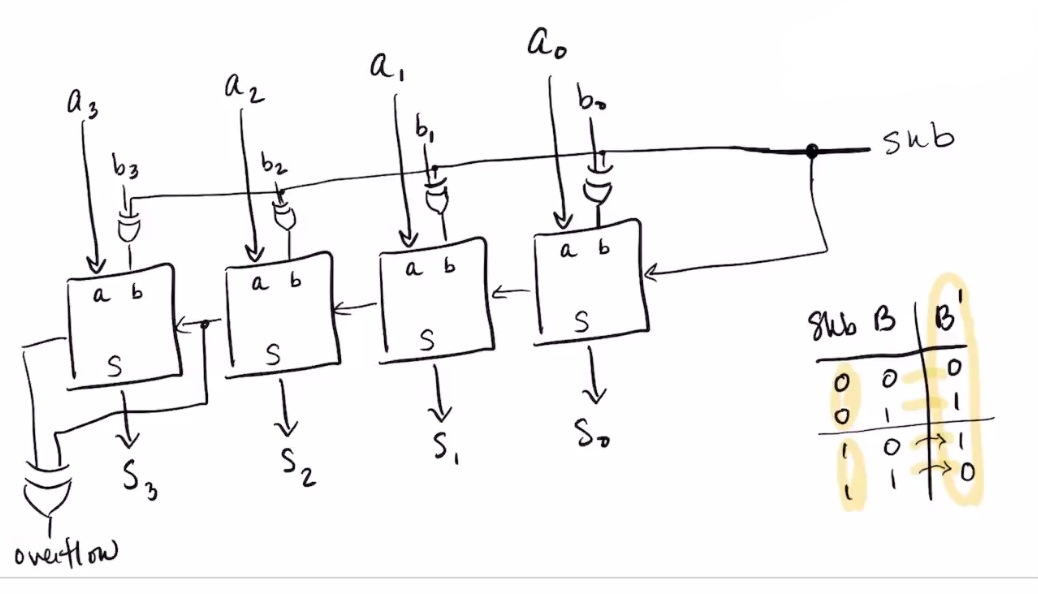 a₀
a₁
a₂
a₃
b₀
b₁
b₂
b₃
sub
a b
S
a b
S
a b
S
a b
S
S₃
S₂
S₁
S₀
overflow
Sub B B'
0 0 0
0 1 1
1 0 → 1
1 1 → 0